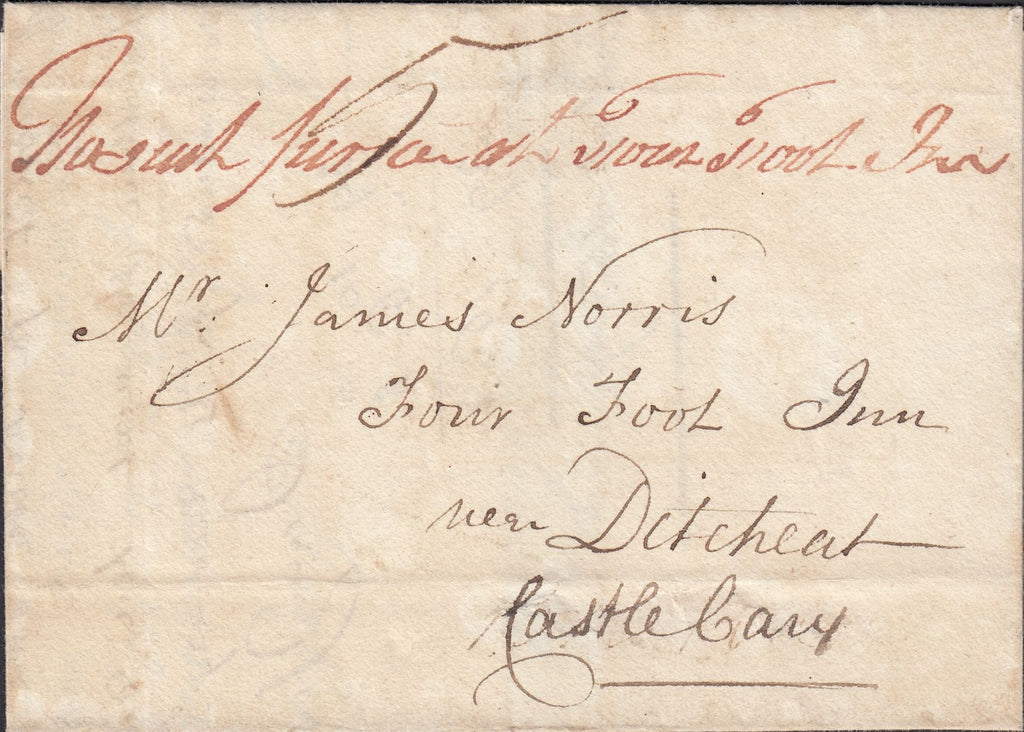 No such Person at Four Foot Inn
5
Mr. James Norris
Four Foot Inn
near Ditcheat
Castle Cary